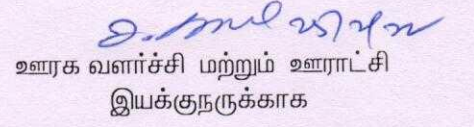 ஊரக வளர்ச்சி மற்றும் ஊராட்சி
இயக்குநருக்காக